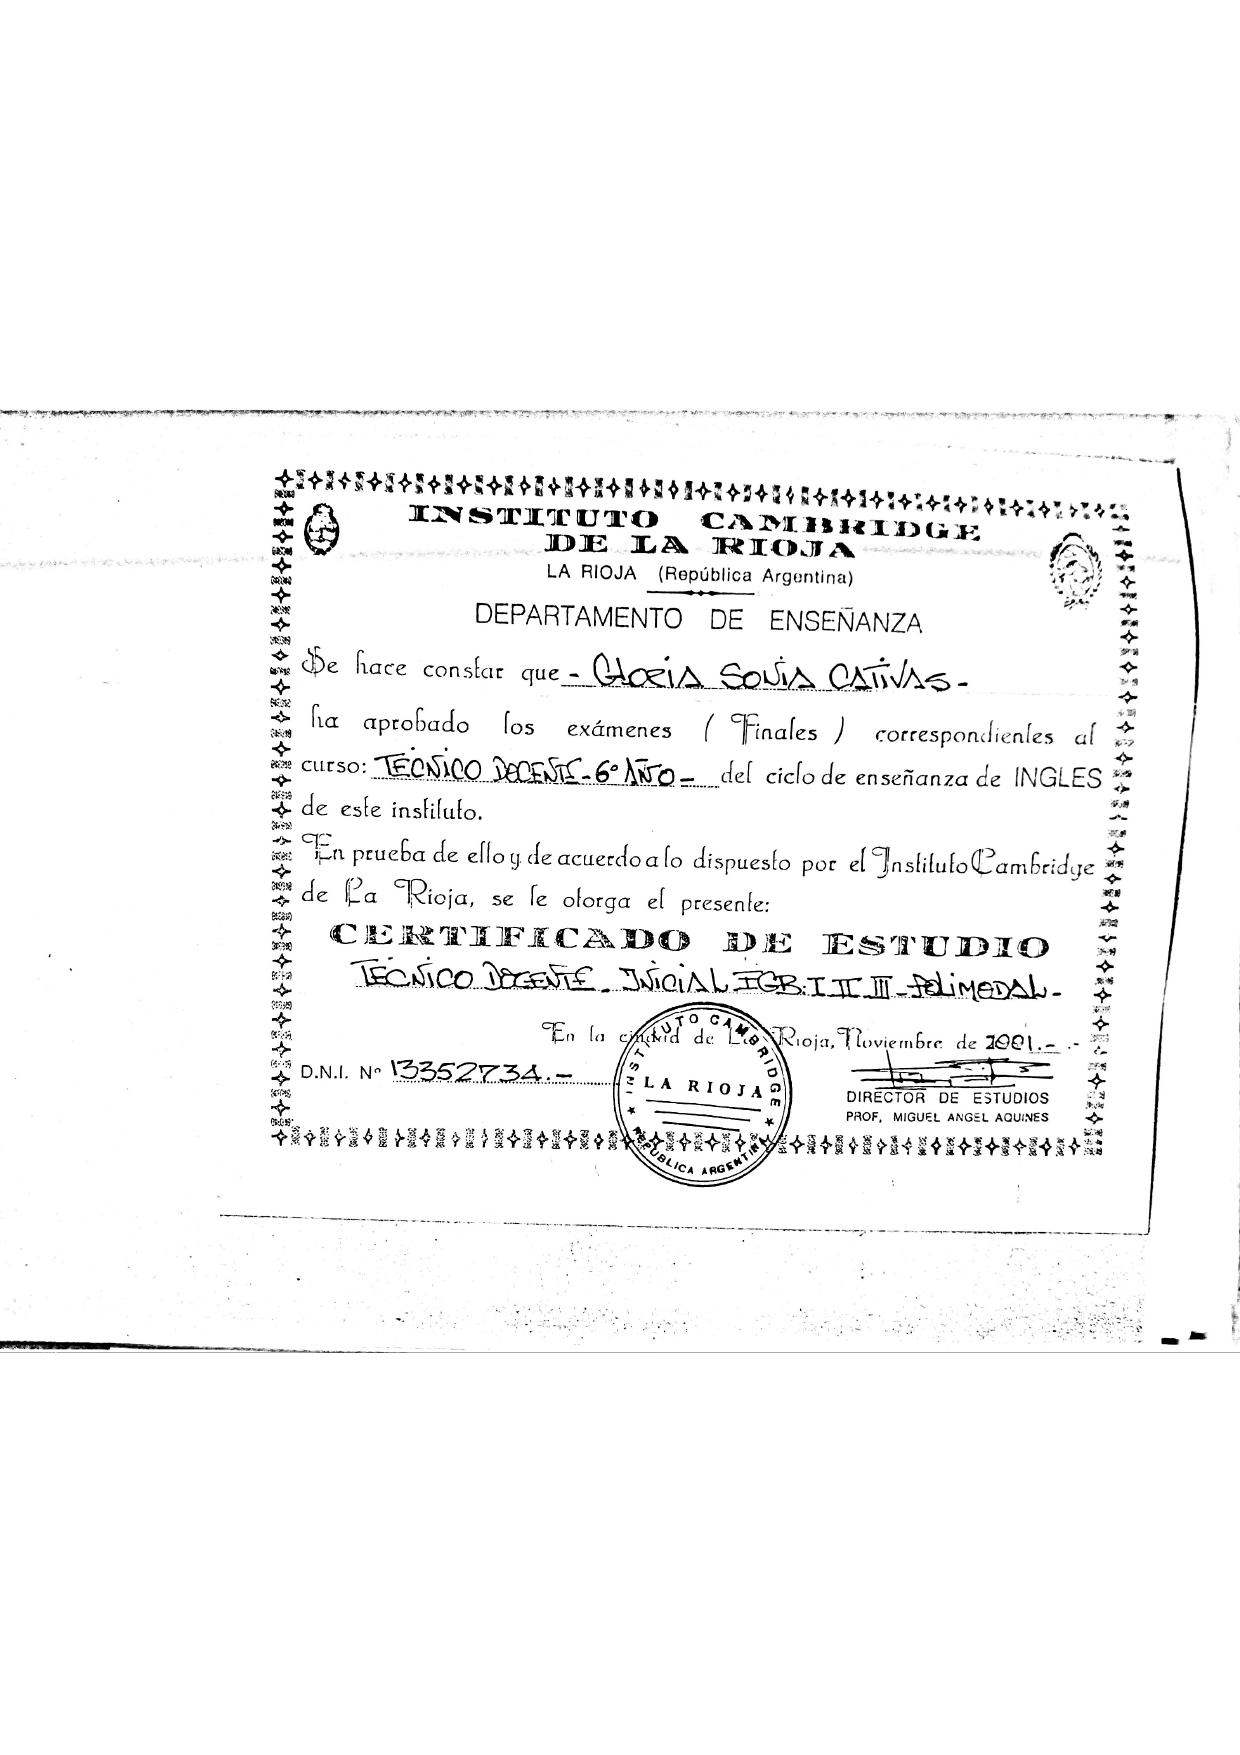 INSTITUTO CAMBRIDGE
DE LA RIOJA
LA RIOJA (República Argentina)
DEPARTAMENTO DE ENSEÑANZA
Se hace constar que - GLORIA SONIA CATIVAS -
ha aprobado los exámenes ( Finales ) correspondientes al
curso: TECNICO DOCENTE - 6º AÑO - del ciclo de enseñanza de INGLES
de este instituto.
En prueba de ello y de acuerdo a lo dispuesto por el Instituto Cambridge
de La Rioja, se le otorga el presente:
CERTIFICADO DE ESTUDIO
TECNICO DOCENTE - INICIAL EGB. I II III - POLIMODAL -
En la ciudad de La Rioja, Noviembre de 2001.-
D.N.I. Nº 13352734.-
INSTITUTO CAMBRIDGE
LA RIOJA
REPUBLICA ARGENTINA
DIRECTOR DE ESTUDIOS
PROF. MIGUEL ANGEL AQUINES